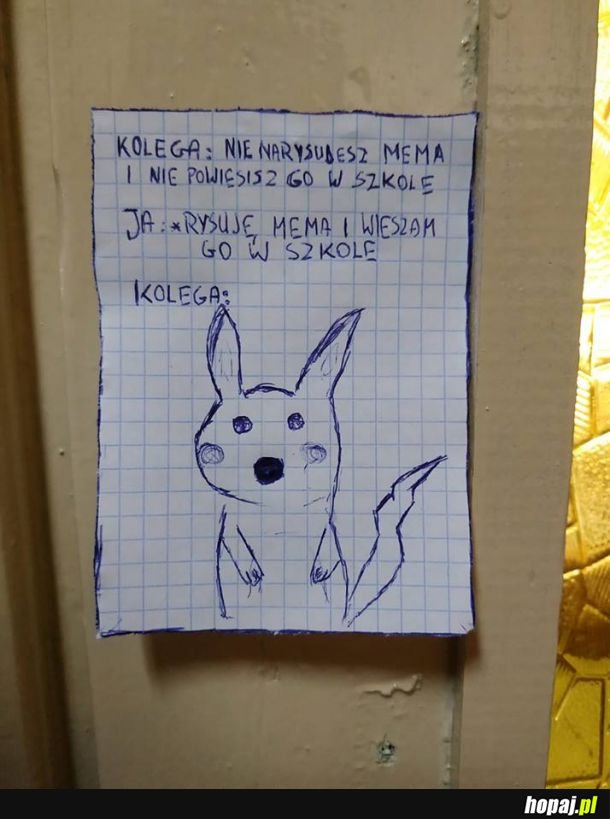 KOLEGA: NIE NARYSUJESZ MEMA
I NIE POWIESISZ GO W SZKOLE
JA: *RYSUJĘ MEMA I WIESZAM
GO W SZKOLE
KOLEGA:
hopaj.pl